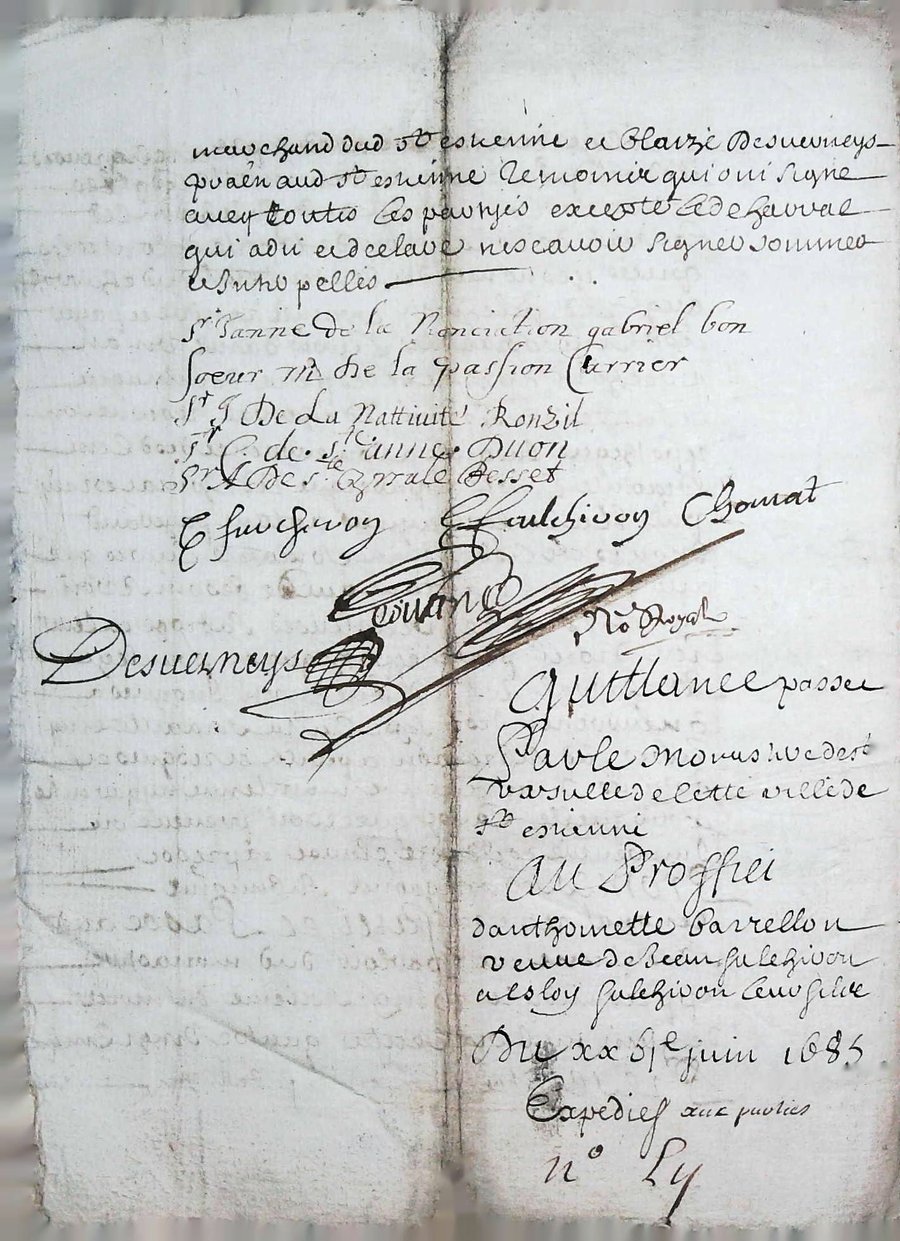 marchand dud st estienne et blaize Desverneys
pnt en aud st estienne tesmoins qui ont signe
avec touttes les parties excepte led chauvat
qui a dit et declare ne scavoir signer sommee
et Interpelles
sr Janne de la Nonciation gabriel bon
soeur m de la passion Currier
Sr J De La Nattivité Ronzil
Sr C. de. ste anne. Duon
Sr De ste Besset
Chomat
No Royal
Desverneys
quittance passee
Paule Morus ve de st
de cette ville de
st estienne
Au Proffict
danthoinette barrellon
veuve de Jean falchivon
et eloy falchivon leur filz
Du xx juin 1685
Expedies aux parties
n° Ly